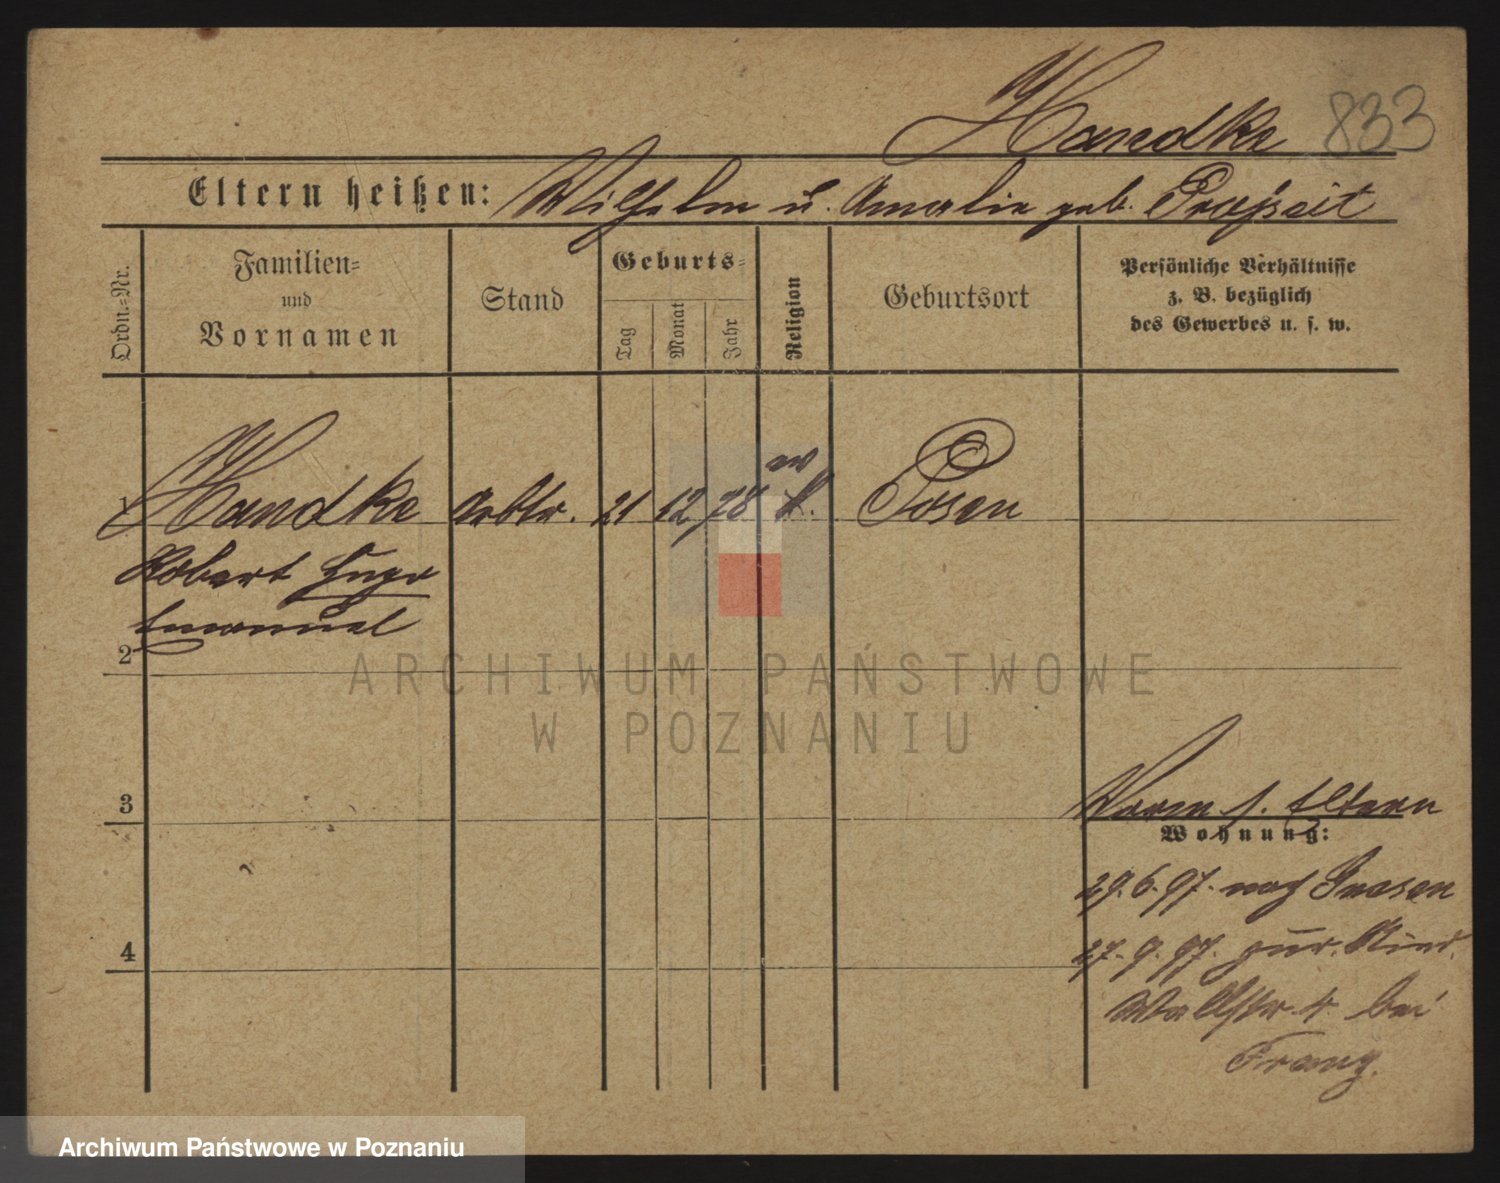 Handke 833
Eltern heißen: Wilhelm u. Amalie geb.
Ordn.-Nr.
Familien-
und
Vornamen
Stand
Geburts-
Tag
Monat
Jahr
Religion
Geburtsort
Persönliche Verhältnisse
z. B. bezüglich
des Gewerbes u. s. w.
1 Handke Arbtr. 21 12 78 Posen
Robert Hugo
Emanuel
2
ARCHIWUM PAŃSTWOWE
W POZNANIU
3
s. Eltern
Wohnung:
29.6.97. nach
4
27.9.97. zur.
Wallstr. 4 bei
Archiwum Państwowe w Poznaniu